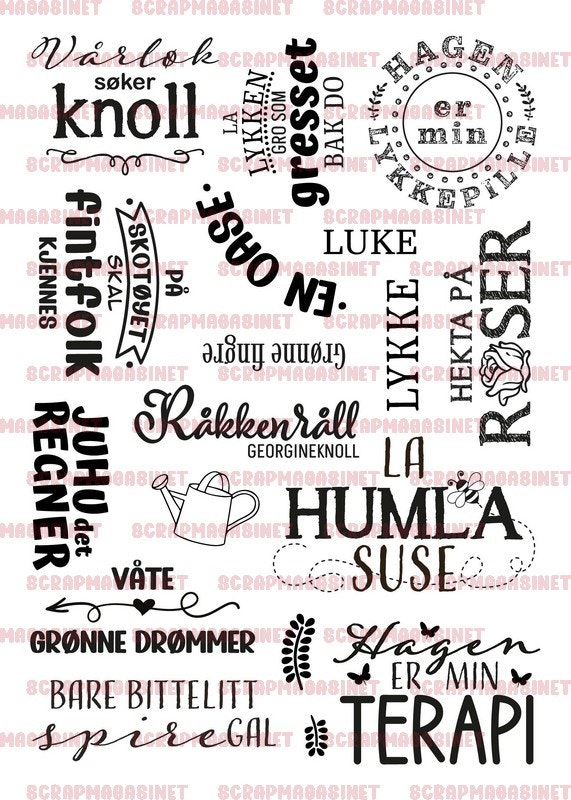 SCRAPMAGASINET
Vårløk
søker
knoll
LA
LYKKEN
GRO SOM
gresset
BAK DO
HAGEN
er
min
LYKKEPILLE
fintfolk
KJENNES
PÅ
SKOTØYET
SKAL
EN OASE
LUKE
LYKKE
HEKTA PÅ
ROSER
Grønne fingre
Råkkenråll
GEORGINEKNOLL
JUHU det
REGNER
LA
HUMLA
SUSE
VÅTE
GRØNNE DRØMMER
BARE BITTELITT
spireGAL
Hagen
ER MIN
TERAPI